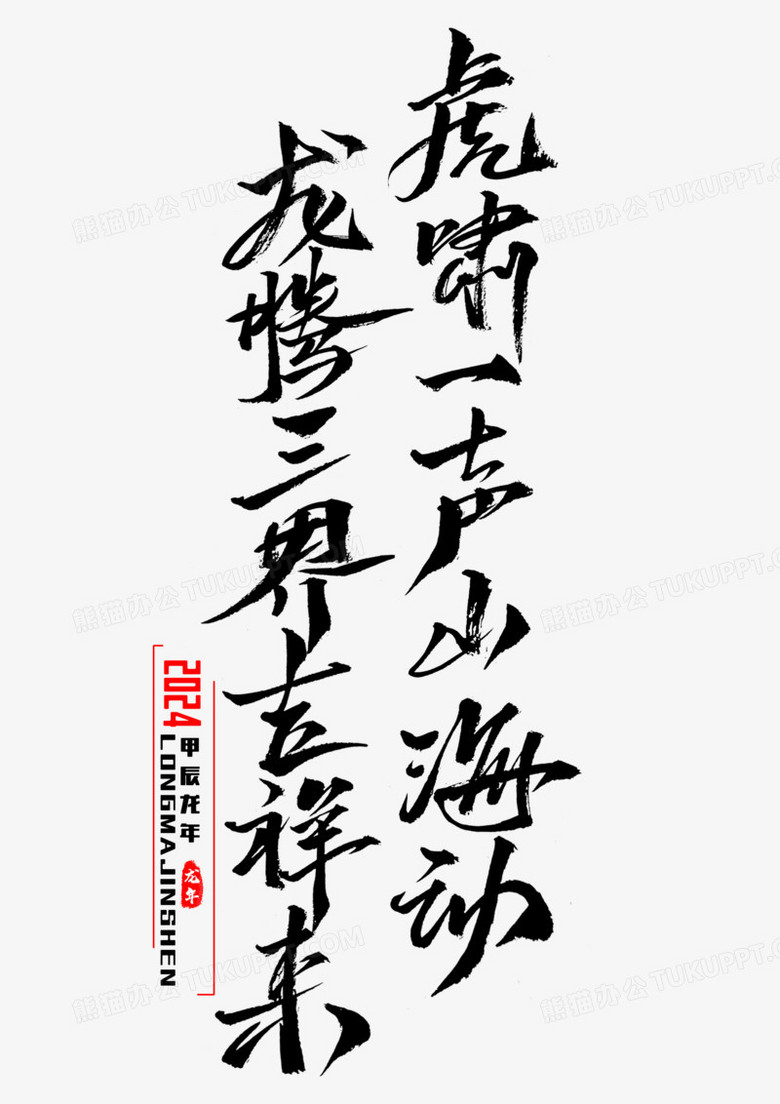 虎啸一声山海动
龙腾三界吉祥来
2024 甲辰龙年
龙年
LONGMAJINSHEN
熊猫办公 TUKUPPT.COM
熊猫办公 TUKUPPT.COM
熊猫办公 TUKUPPT.COM
熊猫办公 TUKUPPT.COM
熊猫办公 TUKUPPT.COM
熊猫办公 TUKUPPT.COM